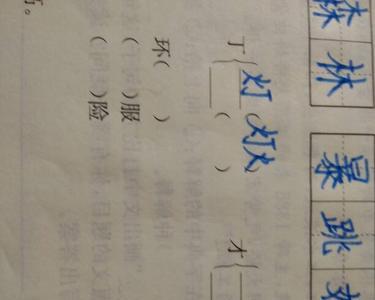 森林 暴跳
丁{灯(灯火) 才{
___( )
环( )
( )服
( )险